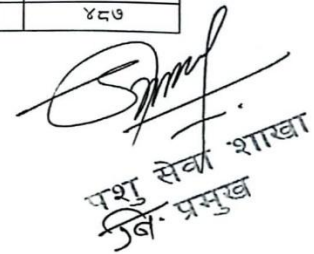 ४८७
पशु सेवा शाखा
नि. प्रमुख